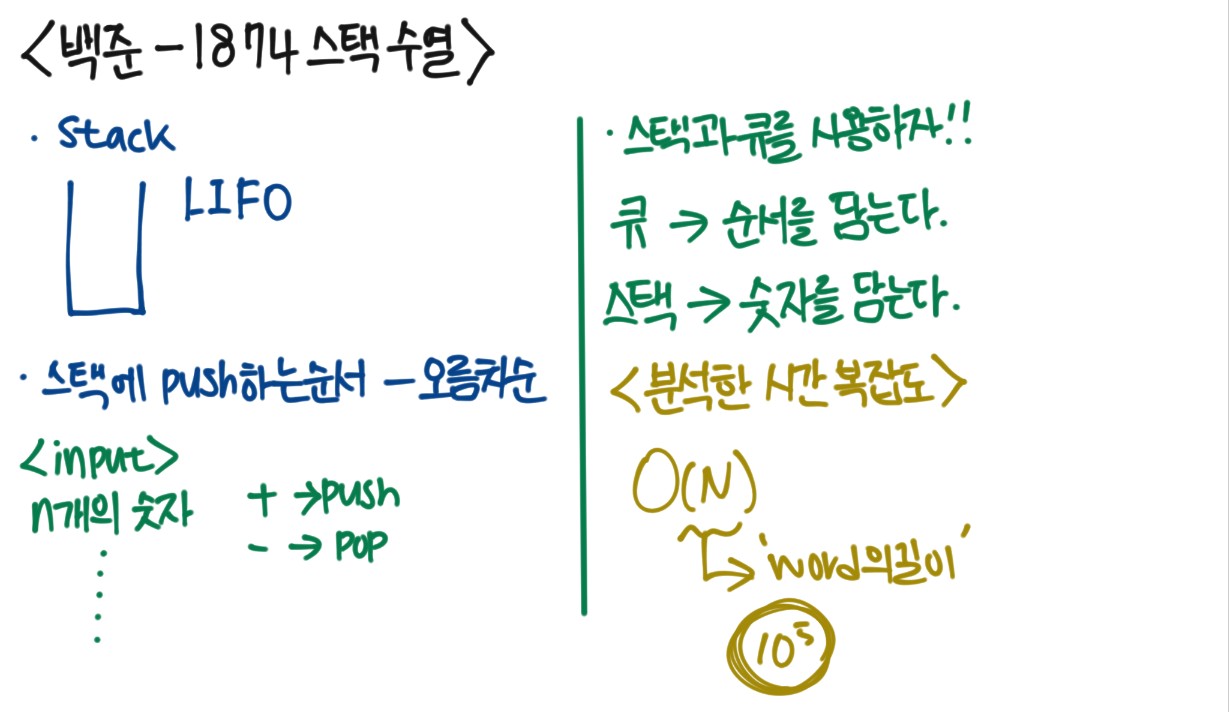 <백준 - 1874 스택 수열>
· Stack
LIFO
· 스택에 push하는순서 - 오름차순
<input>
n개의 숫자
+ → push
- → pop
· 스택과 큐를 사용하자!!
큐 → 순서를 담는다.
스택 → 숫자를 담는다.
<분석한 시간 복잡도>
O(N)
'word의길이'
10⁵